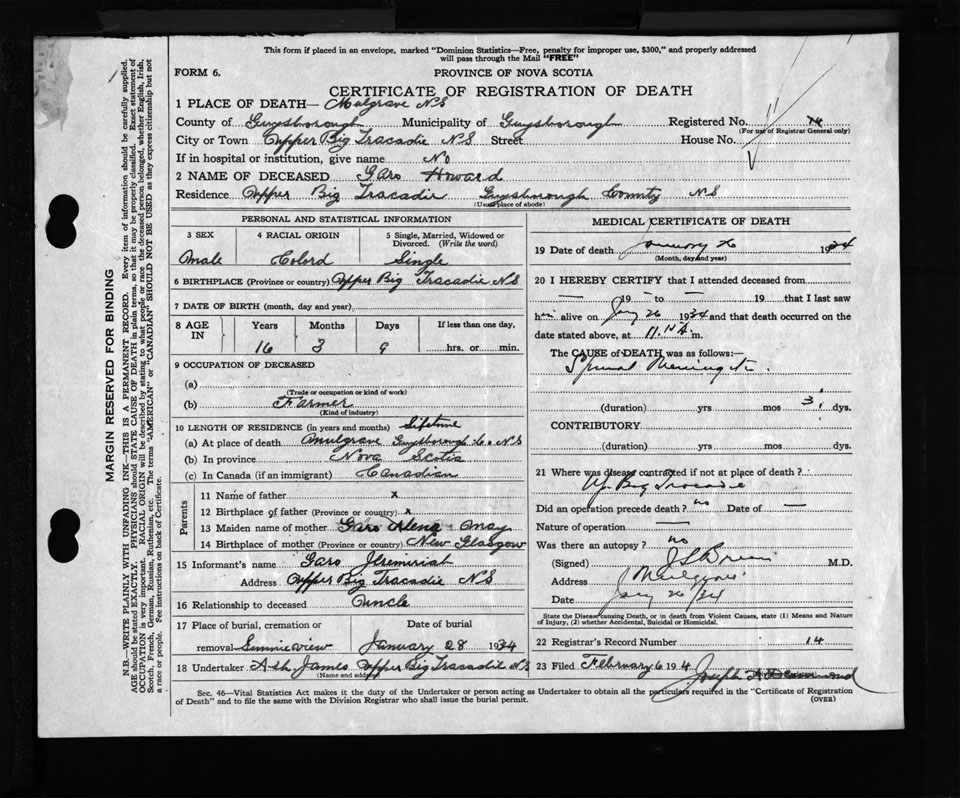 This form if placed in an envelope, marked "Dominion Statistics—Free, penalty for improper use, $300," and properly addressed
will pass through the Mail "FREE"
FORM 6.
PROVINCE OF NOVA SCOTIA
CERTIFICATE OF REGISTRATION OF DEATH
1 PLACE OF DEATH— Mulgrave N S
County of Guysborough Municipality of Guysborough Registered No.
(For use of Registrar General only)
City or Town Upper Big Tracadie N S Street House No.
If in hospital or institution, give name No
2 NAME OF DECEASED Garo Howard
Residence Upper Big Tracadie Guysborough County N S
(Usual place of abode)
PERSONAL AND STATISTICAL INFORMATION
3 SEX 4 RACIAL ORIGIN 5 Single, Married, Widowed or Divorced. (Write the word)
Male Colord Single
6 BIRTHPLACE (Province or country) Upper Big Tracadie N S
7 DATE OF BIRTH (month, day and year)
8 AGE IN Years Months Days If less than one day,
16 3 9 hrs. or min.
9 OCCUPATION OF DECEASED
(a)
(Trade or occupation or kind of work)
(b) Farmer
(Kind of industry)
10 LENGTH OF RESIDENCE (in years and months) Lifetime
(a) At place of death Mulgrave Guysborough Co N S
(b) In province Nova Scotia
(c) In Canada (if an immigrant) Canadian
Parents
11 Name of father x
12 Birthplace of father (Province or country) x
13 Maiden name of mother Garo Alena May
14 Birthplace of mother (Province or country) New Glasgow
15 Informant's name Garo Jeremiriah
Address Upper Big Tracadie N S
16 Relationship to deceased Uncle
17 Place of burial, cremation or removal Date of burial
Sunnieview January 28 1934
18 Undertaker James Upper Big Tracadie N S
(Name and address)
MEDICAL CERTIFICATE OF DEATH
19 Date of death January 26 1934
(Month, day and year)
20 I HEREBY CERTIFY that I attended deceased from
— 19 — to — 19 that I last saw
him alive on Jany 26 1934 and that death occurred on the
date stated above, at 11. A. m.
The CAUSE of DEATH was as follows:—
Spinal Meningitis
(duration) yrs mos 3 dys.
CONTRIBUTORY
(duration) yrs mos dys.
21 Where was disease contracted if not at place of death?
Up. Big Tracadie
Did an operation precede death? no Date of —
Nature of operation —
Was there an autopsy? no
(Signed) M.D.
Address Mulgrave
Date Jany 26/34
State the Disease causing Death, or in death from Violent Causes, state (1) Means and Nature
of Injury, (2) whether Accidental, Suicidal or Homicidal.
22 Registrar's Record Number 14
23 Filed February 6 194 Joseph
Sec. 46—Vital Statistics Act makes it the duty of the Undertaker or person acting as Undertaker to obtain all the particulars required in the "Certificate of Registration
of Death" and to file the same with the Division Registrar who shall issue the burial permit.
(OVER)
MARGIN RESERVED FOR BINDING
N.B.—WRITE PLAINLY WITH UNFADING INK—THIS IS A PERMANENT RECORD. Every item of information should be carefully supplied.
AGE should be stated EXACTLY. PHYSICIANS should STATE CAUSE OF DEATH in plain terms, so that it may be properly classified. Exact statement of
OCCUPATION is very important. RACIAL ORIGIN will be described by stating to what people or race the deceased person belonged, whether English, Irish,
Scotch, French, German, Russian, Ruthenian, etc. The terms "AMERICAN" or "CANADIAN" SHOULD NOT BE USED as they express citizenship but not
a race or people. See instructions on back of Certificate.